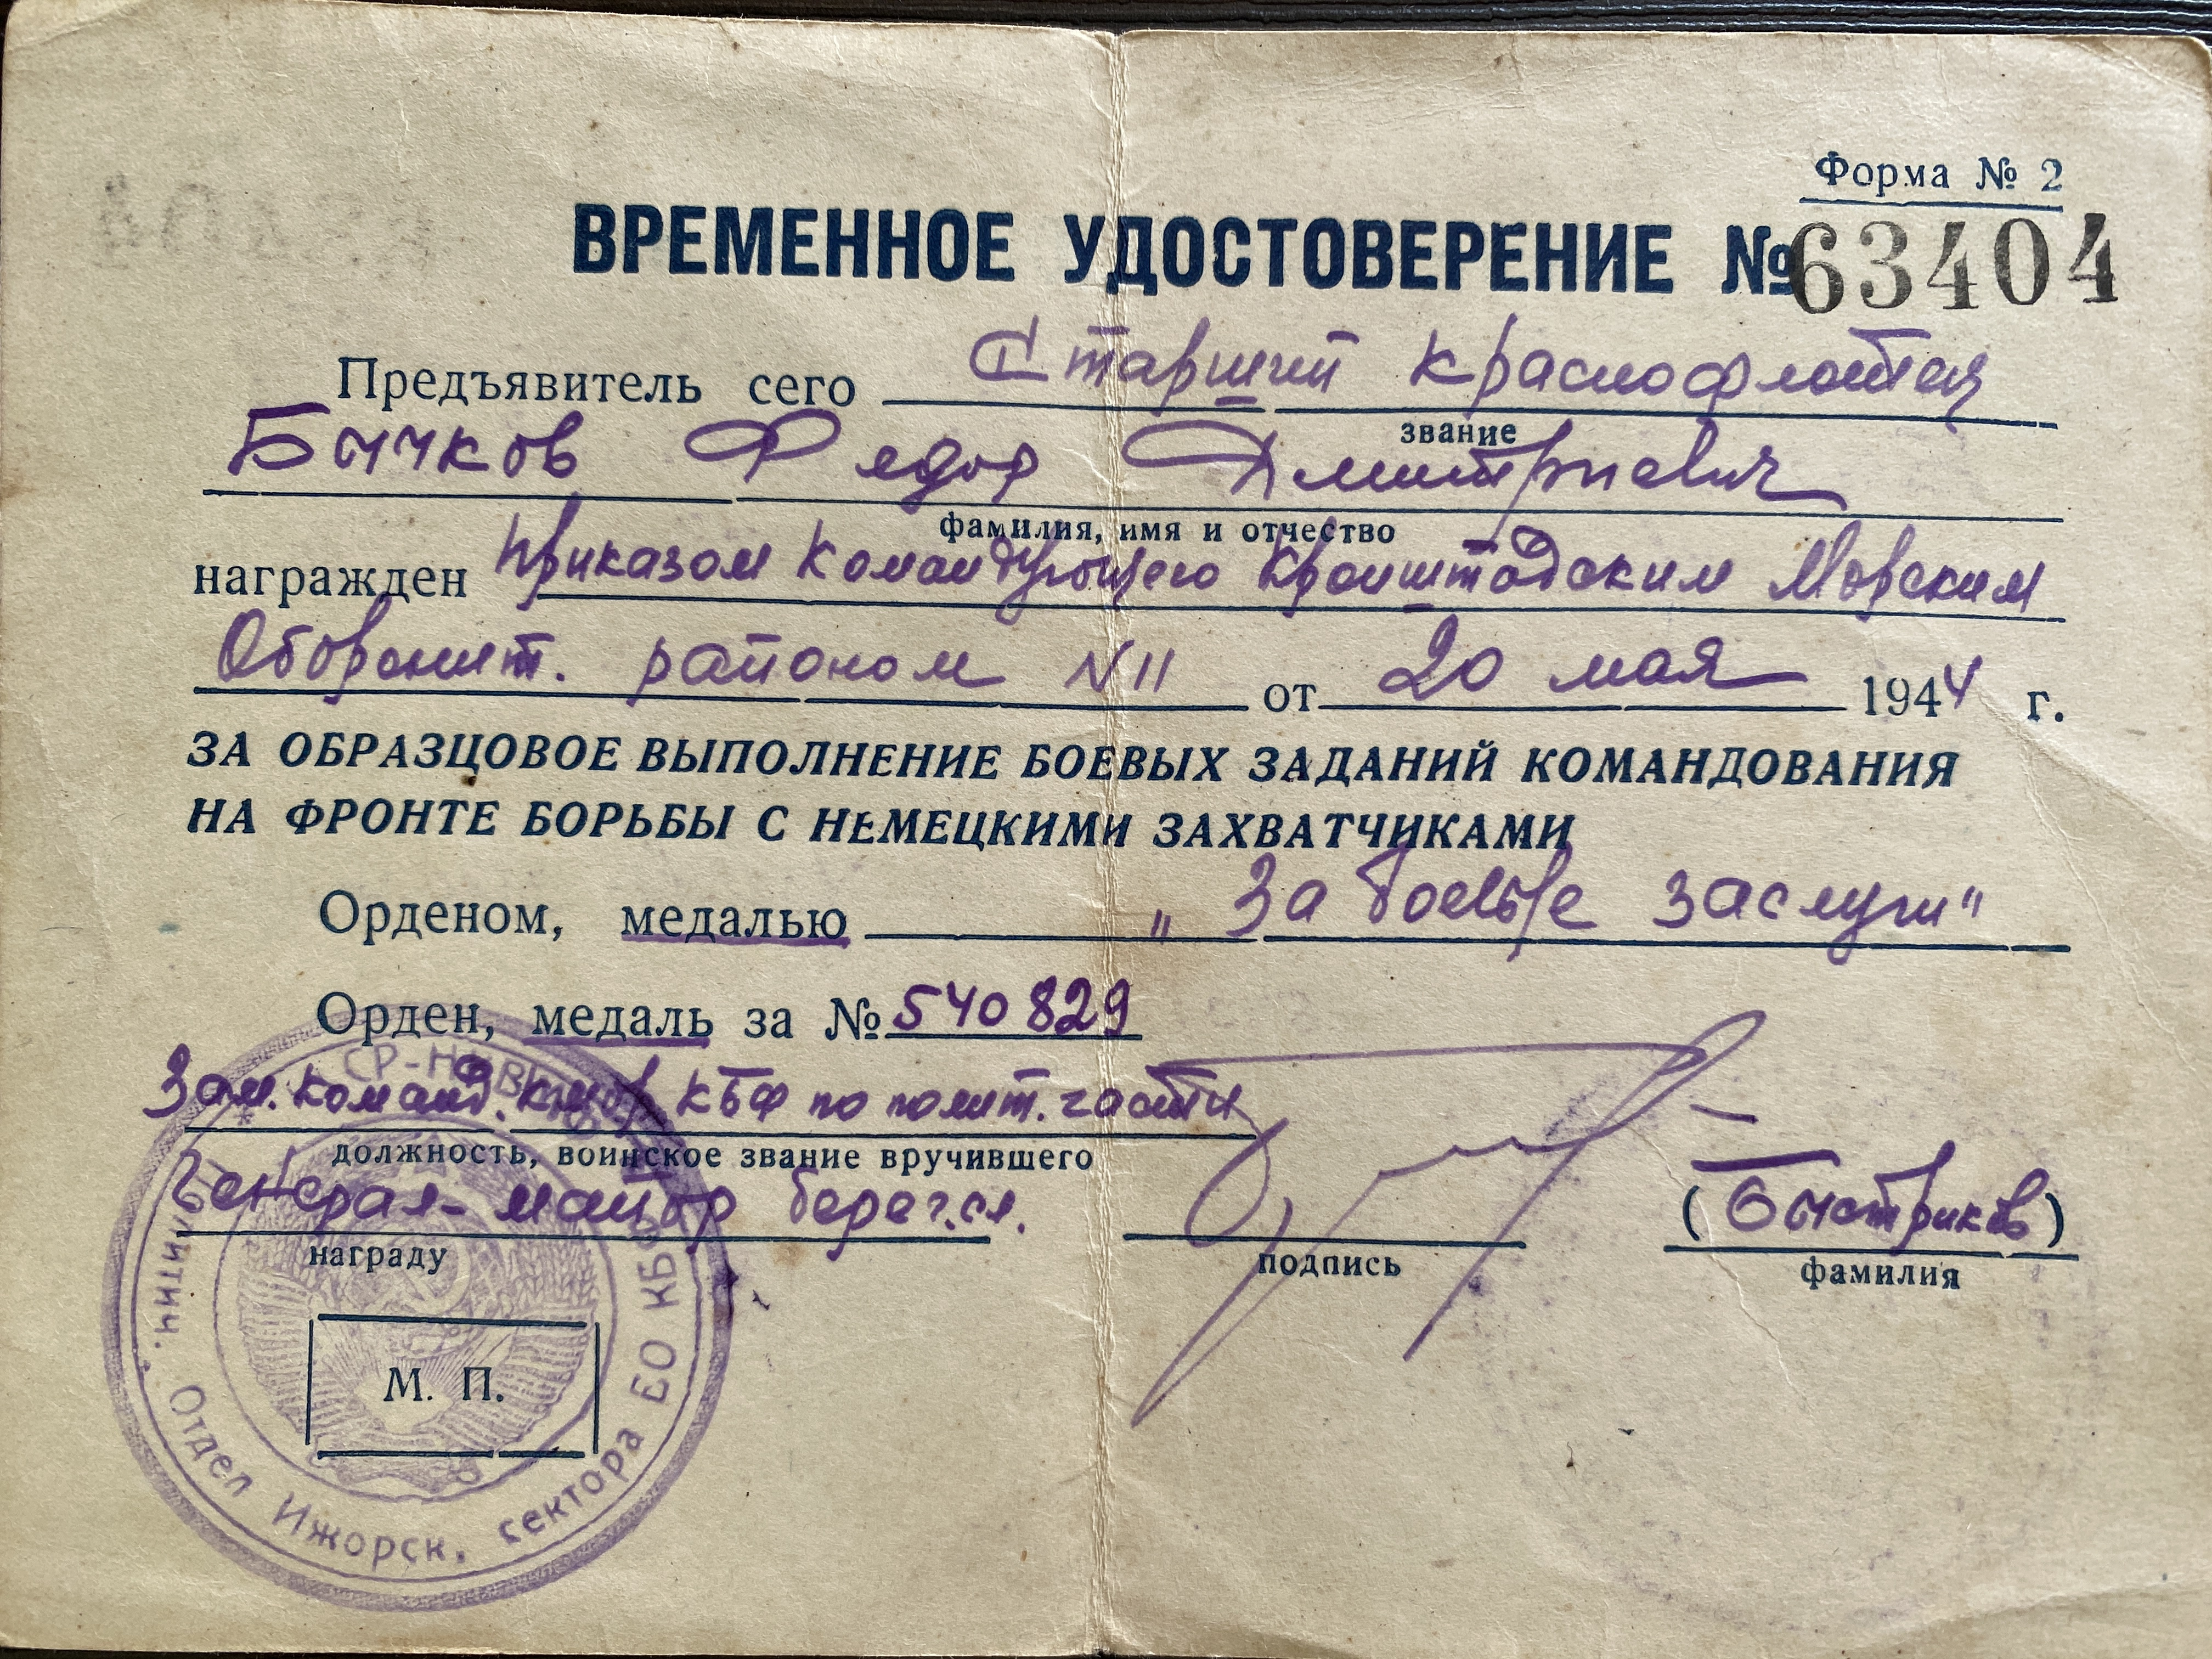 Форма № 2
ВРЕМЕННОЕ УДОСТОВЕРЕНИЕ № 63404
Предъявитель сего Старший краснофлотец
звание
Бычков Федор Дмитриевич
фамилия, имя и отчество
награжден Приказом Командующего Кронштадским Морским
Оборонит. районом N 11 от 20 мая 1944 г.
ЗА ОБРАЗЦОВОЕ ВЫПОЛНЕНИЕ БОЕВЫХ ЗАДАНИЙ КОМАНДОВАНИЯ
НА ФРОНТЕ БОРЬБЫ С НЕМЕЦКИМИ ЗАХВАТЧИКАМИ
Орденом, медалью „За боевые заслуги"
Орден, медаль за № 540829
Зам. команд. КМОР КБФ по полит. части
должность, воинское звание вручившего
Генерал-майор берег.сл.
награду
подпись
(Быстриков)
фамилия
М. П.
Политич. Отдел Ижорск. сектора БО КБФ